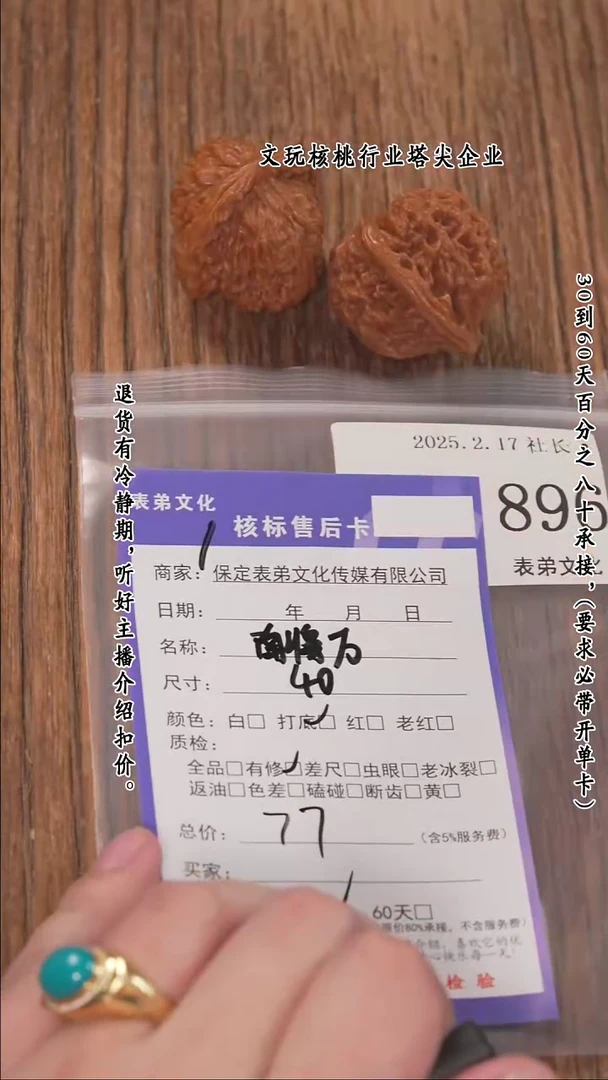 文玩核桃行业塔尖企业
30到60天百分之八十承接,(要求必带开单卡)
退货有冷静期,听好主播介绍扣价。
2025.2.17 社长
896
表弟文化
表弟文化
核标售后卡
商家: 保定表弟文化传媒有限公司
日期: 年 月 日
名称:
尺寸: 40
颜色: 白□ 打底□ 红□ 老红□
质检:
全品□有修□差尺□虫眼□老冰裂□
返油□色差□磕碰□断齿□黄□
总价: 77 (含5%服务费)
买家:
60天□
原价80%承接, 不含服务费)
介绍, 喜欢它的优
心快乐每一天!
检 验